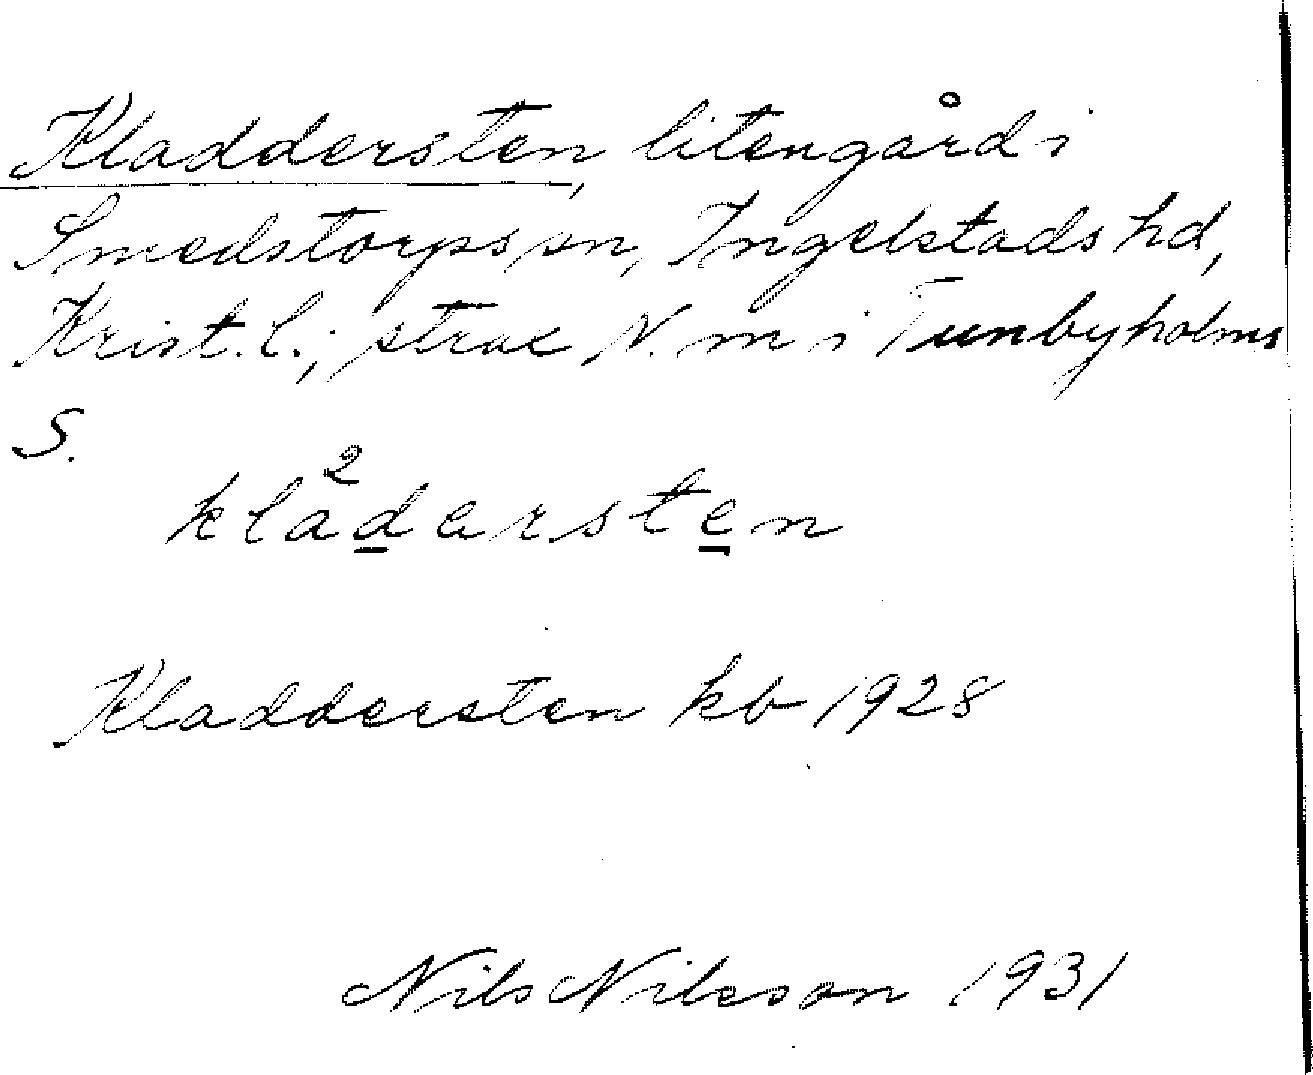 Kladdersten, liten gård i
Smedstorps sn, Ingelstads hd,
Krist. l.; strax N. m i Tunbyholms
S.
kla²dersten
Kladdersten kb 1928
Nils Nilsson 1931